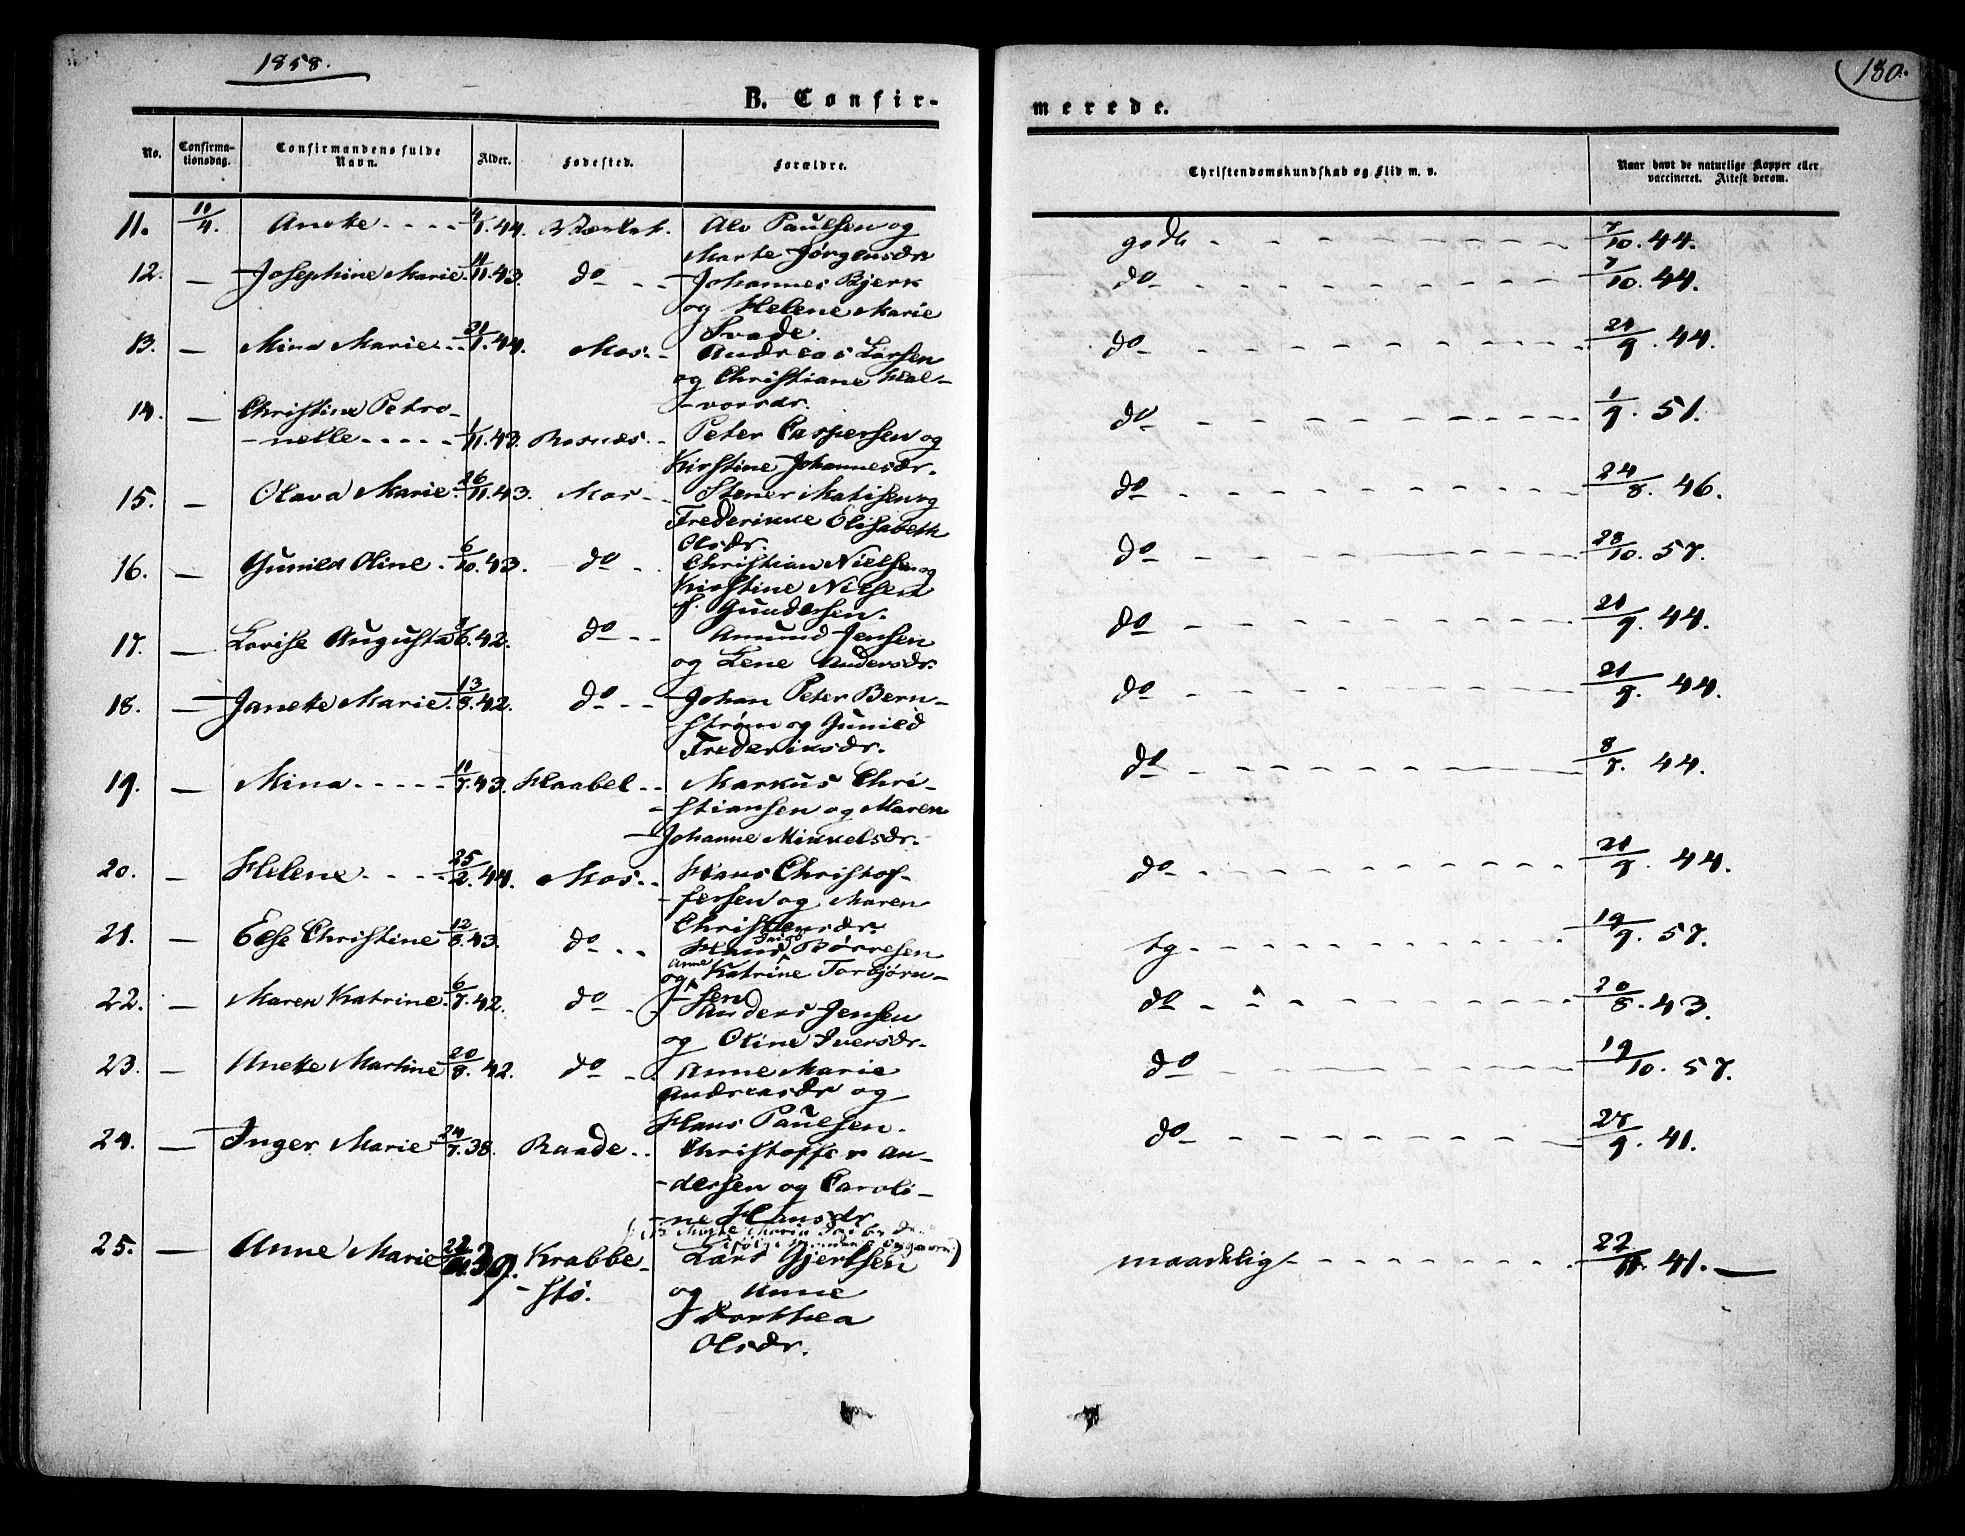 1858.
180.
B. Confir-
merede.
No.
Confirma-
tionsdag.
Confirmandens fulde
Navn.
Alder.
Fødested.
Forældre.
Christendomskundskab og Flid m. v.
Naar havt de naturlige Kopper eller
vaccineret. Attest derom.
11. Anette 44. Alv Paulsen og godt 7/10. 44.
Marte Jørgensdr
12. — Josephine Marie 11/11. 43. do Johannes Bjerk do 7/10. 44.
og Helene Marie
Svade.
13. — Mina Marie 44. Mos. Andreas Larsen do 44.
og Christiane Hal-
vorsdr.
14. — Christine Petro-
nelle 1/11. 43. Peter Caspersen og do 1/9. 51.
Kirstine Johannesdr.
15. — Olava Marie 26/11. 43. Mos Stener Matisen og do 24/8. 46.
Frederikke Elisabeth
Olsdr.
16. — Gunild Oline 6/10. 43. do Christian Nielsen og do 28/10. 57.
Kirstine Nielsen
f. Gundersen.
17. — Lovise Augusta 42. do Amund Jensen do 21/9. 44.
og Lene Andersdr.
18. — Janette Marie 13/8. 42. do Johan Peter Bern- do 21/9. 44.
strøm og Gunild
Frederiksdr.
19. — Mina 11/7. 43. Haabel Markus Chri- do 8/7. 44.
stiansen og Maren
Johanne Mikkelsdr.
20. — Helene 25/2. 44. Mos Hans Christof- do 21/9. 44.
fersen og Maren
Christensdr.
21. — Else Christine 12/8. 43. do Hans Børresen tg 19/9. 57.
og Anne Katrine Torbjørn-
sen
22. — Maren Katrine 6/7. 42. do Anders Jensen do 20/8. 43.
og Oline Iversdr.
23. — Anette Martine 20/8. 42. do Anne Marie do 19/10. 57.
Andreasdr og
Hans Paulsen.
24. — Inger Marie 24/7. 38. Raade Christoffer An- do 27/9. 41.
dersen og Caroli-
ne Hansdr
25. — Anne Marie 39. Krabbe- Lars Gjertsen maadelig 22/11. 41.
stø. og Anne
Dorthea
Olsdr.